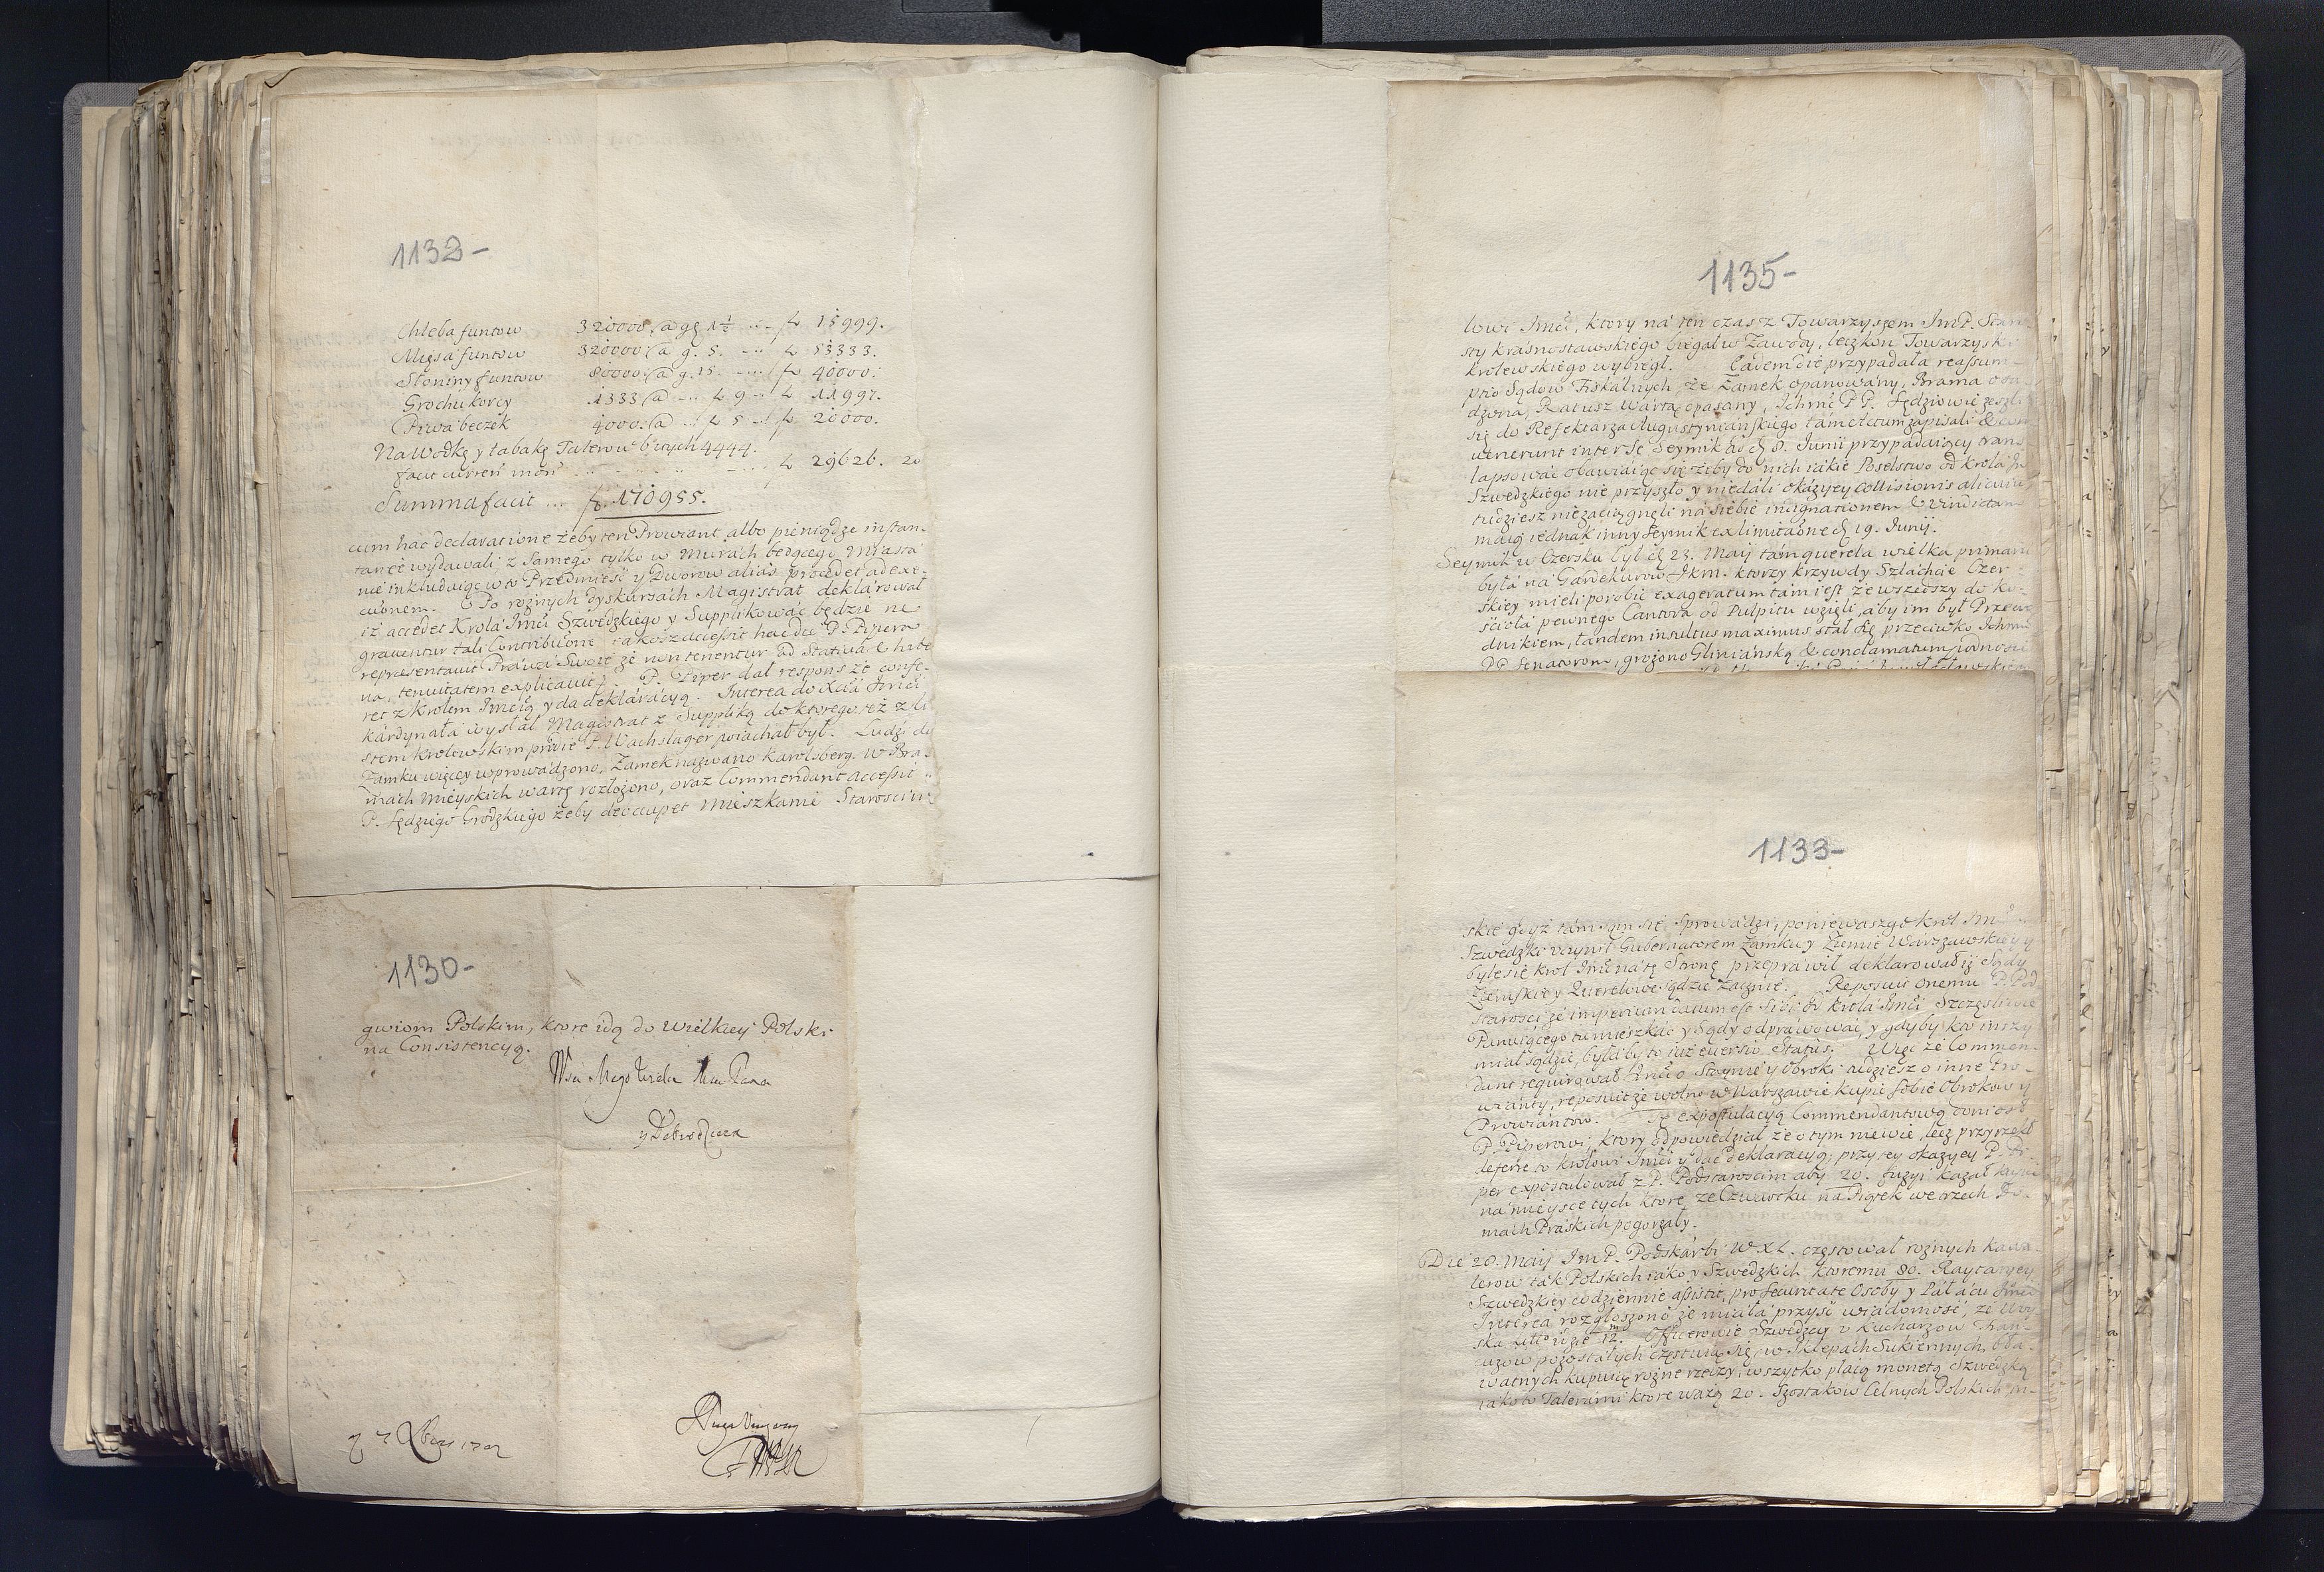 1132-
Chleba funtow 320000. (a gg 1½ ... fl. 15999.
Mięsa funtow 320000 (a g. 5. ... fl. 53333.
Słoniny funtow 80000. (a g. 15. ... fl. 40000.
Grochu korcy 1333 (a ... fl. 9 ... fl. 11997.
Piwa beczek 4000. (a ... fl. 5 ... fl. 20000.
Na Wodkę y tabakę Talerow bitych 4444.
facit curren mon ... fl. 29626. 20
Summa facit ... fl. 170955.
cum hac declaratione żeby ten Prowiant albo pieniądze instan-
taneè wydawali, z samego tylko w Murach będącego Miasta
nie inkluduiąc w to Przedmieść y Dworow alias procedet ad exe-
cutionem. Po rożnych dyskursach Magistrat deklarował
iż accedet Krola Jmci Szwedzkiego y Supplikować będzie ne
graventur tali Contributione iakosz accessit hac die P. Pipera
representauit Prawa swoie że non tenentur ad Stativa &
tenuitatem explicauit. P. Piper dał respons że confe-
ret z Krolem Jmcią y da deklaracyą. Interea do Xcia Jmci
Kardynała wysłał Magistrat z Suppliką do ktorego też z li-
stem Krolewskim P. Wachslager poiachał był. Ludzi do
Zamku więcey wprowadzono, Zamek nazwano Karolsberg. W Bra-
mach Mieyskich wartę rozłożono, oraz Commendant accessit
P. Sędziego Grodzkiego żeby deoccupet mieszkanie
1130-
gwiom Polskim, ktore idą do Wielkiey Polski
na Consistencyą.
Pana
y Dobrodzieia
1702
1135-
lowi Jmci, ktory na ten czas z Towarzyszem Jm P. Staro-
sty Krasnostawskiego biegał w Zawody, lecz koń Towarzyski
Krolewskiego wybiegł. Eadem die przypadała reassum-
ptio Sądow Fiskalnych że Zamek opanowany, Brama osa-
dzona, Ratusz Wartą opasany, Ichmć PP. Sędziowie zeszli
się do Refektarza Augustyniańskiego tam actum zapisali & con
uenerunt inter se Seymik 8. Junii przypadaiący trans
lapsować obawiaiąc się żeby do nich iakie Poselstwo od Krola Jm
Szwedzkiego nie przyszło y niedali okazyey collisionis alicuius
tudziesz niezaciągnęli na siebie indignationem & Vindictam
maią iednak inny Seymik ex limitatione 19. Junij.
Seymik w Czersku był 23. Maij tam querela wielka primaria
była na Gardekurow Jkm. ktorzy krzywdy Szlachcie Czer-
skiey mieli porobić exageratum tam iest, że wszedszy do Ko-
ścioła pewnego Cantora od Pulpitu wzięli, aby im był Przewo
dnikiem, tandem insultus maximus stał się przeciwko Ichmć
PP. Senatorom, grożono Gliniańską & conclamatum
1133-
skie gdyż tam sam się sprowadzi, ponieważ go Krol Jmć
Szwedzki uczynił Gubernatorem Zamku y Ziemie Warszawskiey y
byle się Krol Jmć na tę Stronę przeprawił deklarował iż Sądy
Ziemskie y Querelowe sądzić zacznie. Reposuit onemu P. Pod
Starosci że imperium datum est sibi od Krola Jmci Szczęśliwie
Panuiącego tu mieszkać y Sądy odprawować, y gdyby kto inszy
miał sądzić, byłaby to iuż euersio Status. Więc że Commen-
dant requirował Jmci o Staynie y Obroki tudziesz o inne Pro-
wianty, reposuit że wolno w Warszawie kupić sobie Obrokow y
Prowiantow. Tę expostulacyą Commendantową doniosł
P. Piperowi, ktory odpowiedział, że o tym niewie, lecz przyrzekł
deferre to Krolowi Jmci y dać deklaracyą; przy tey okazyey P. Pi-
per expostulował z P. Podstaroscim aby 20. fuzyi kazał
na mieysce tych ktore ze Czwartku na Piątek we trzech Do-
mach Praskich pogorzały.
Die 28. Maij Jm P. Podskarbi W X L. częstował rożnych Kawa-
lerow tak Polskich iako y Szwedzkich ktoremu 80. Raytaryey
Szwedzkiey codziennie assistit, pro securitate Osoby y Pałacu Jmci
Interea rozgłoszono że miała przyść wiadomość, że Woy-
ska 12.m Officerowie Szwedzcy v Kucharzow Fran-
cuzow pozostałych częstuią się, w Sklepach Sukiennych, bła-
watnych kupuią rożne rzeczy, wszytko płacą monetą Szwedzką
iako to Talerami ktore ważą 20. Szostakow Celnych Polskich